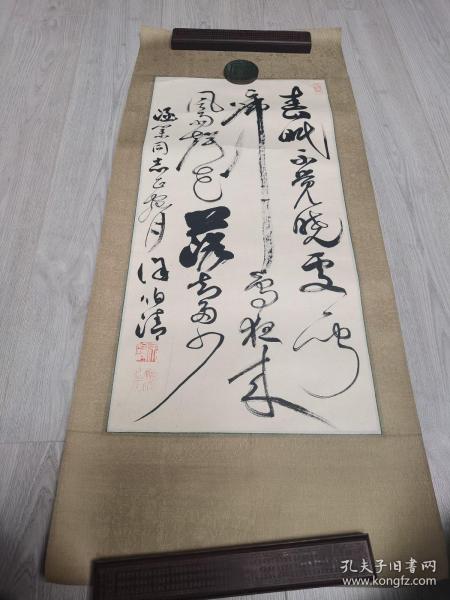 春眠不觉晓处闻
啼鸟夜来
风雨声花落知多少
同志正腕
徐伯清
孔夫子旧书网
www.kongfz.com